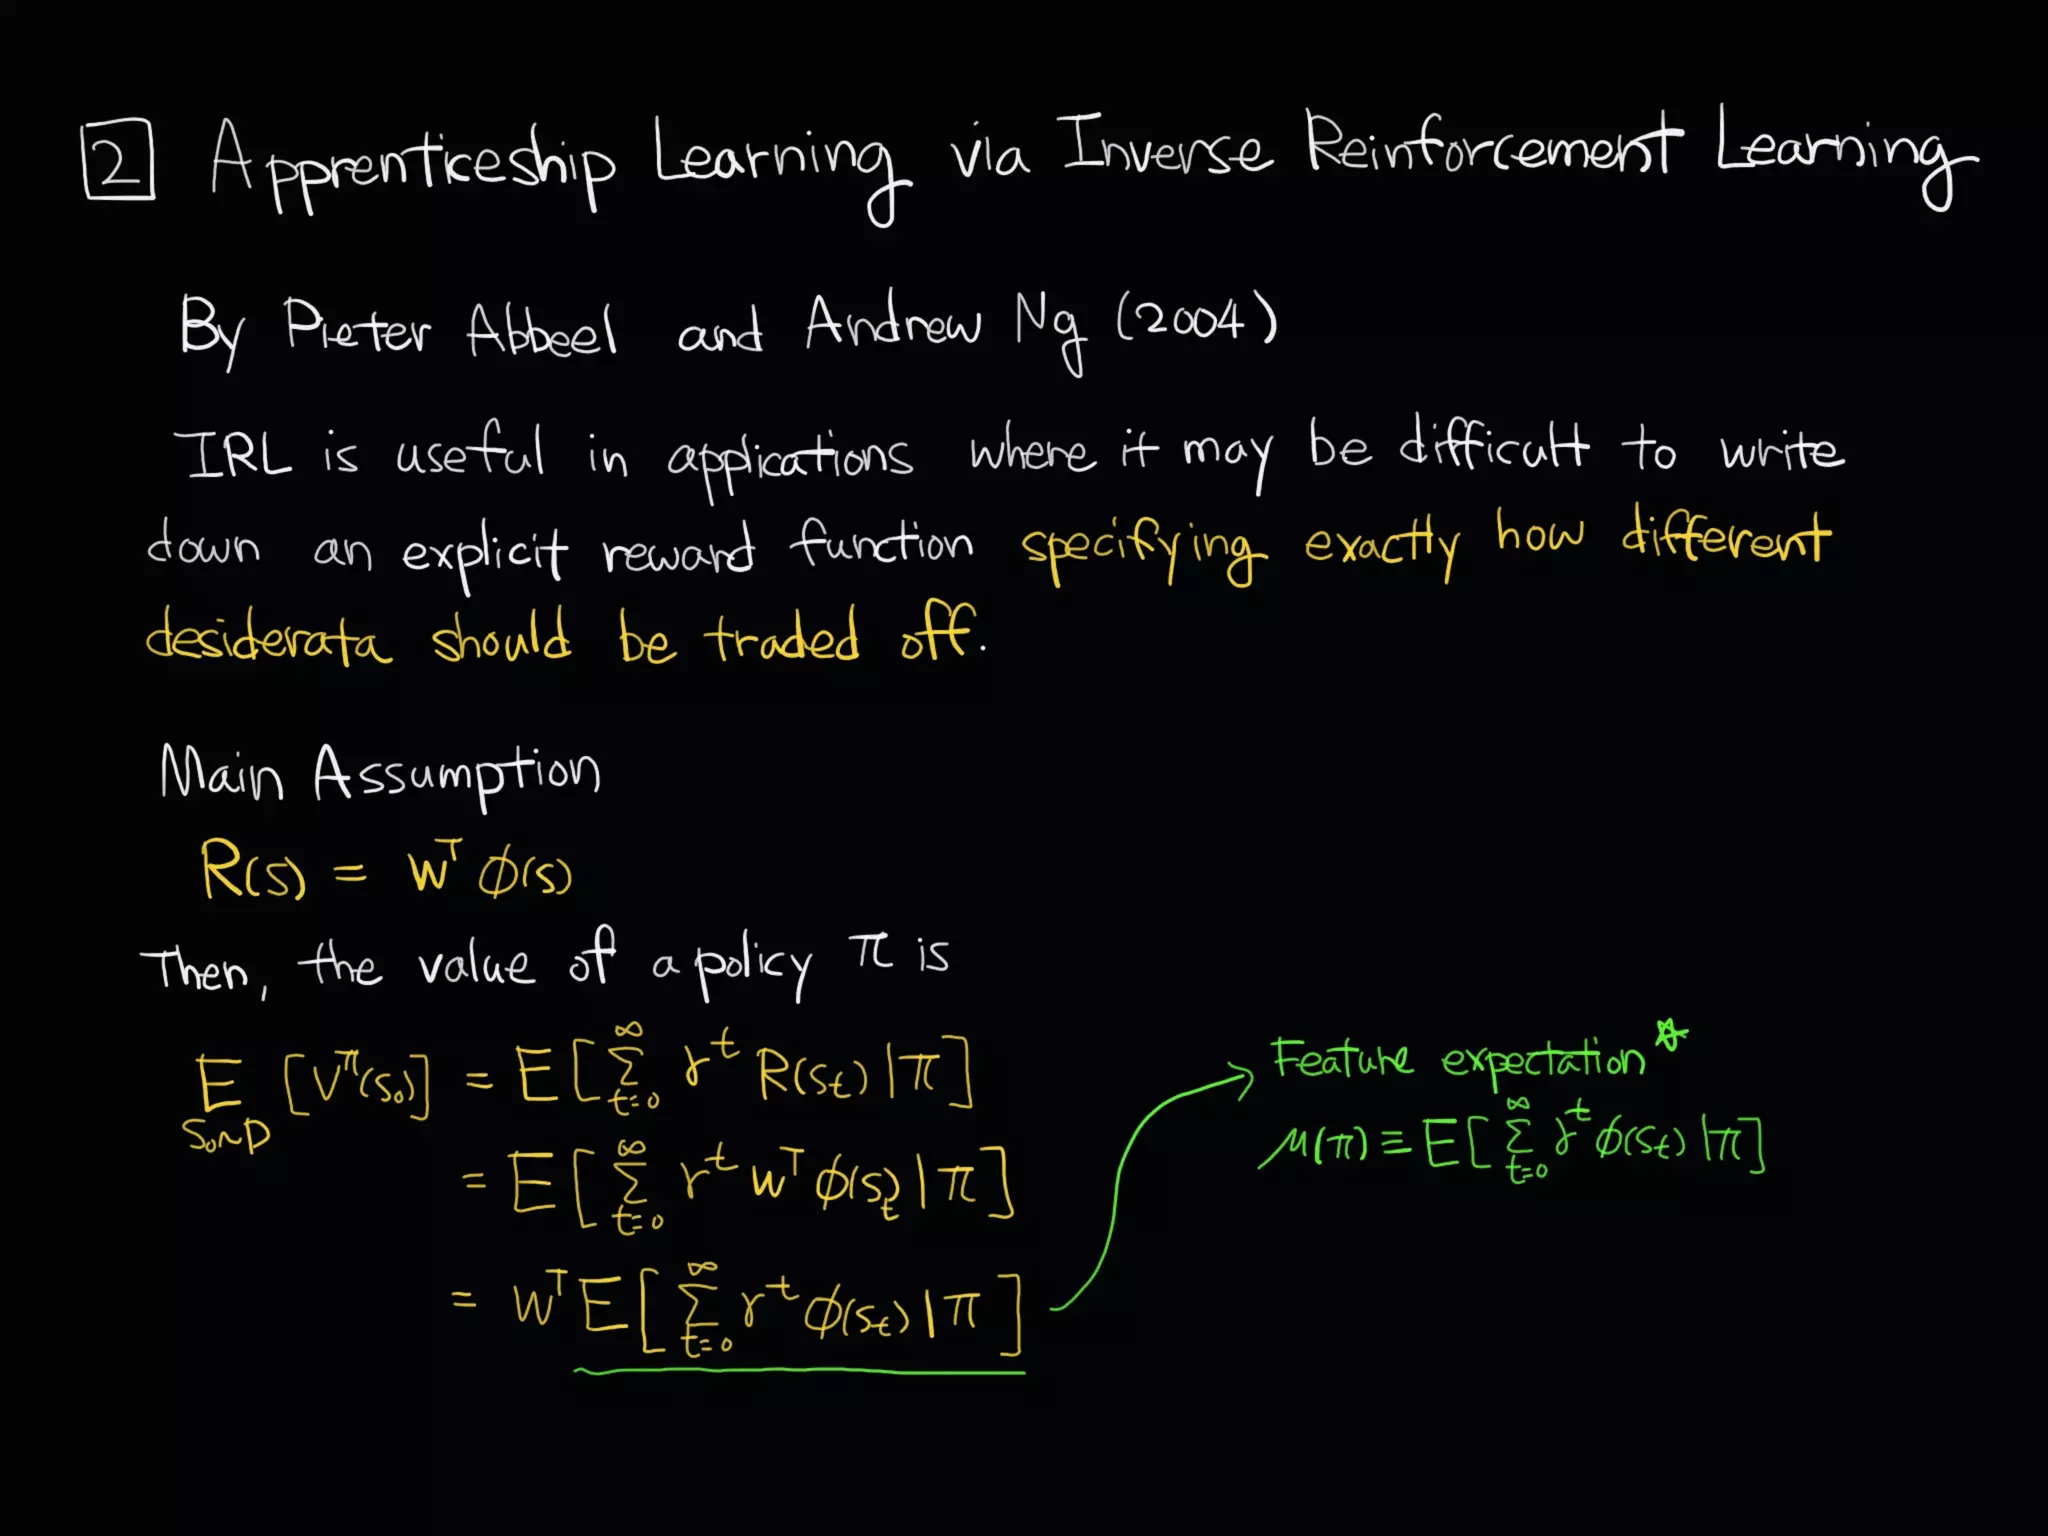 2 Apprenticeship Learning via Inverse Reinforcement Learning
By Pieter Abbeel and Andrew Ng (2004)
IRL is useful in applications where it may be difficult to write
down an explicit reward function specifying exactly how different
desiderata should be traded off.
Main Assumption
R(s) = wᵀ φ(s)
Then, the value of a policy π is
E_{s₀~D} [V^π(s₀)] = E[∑_{t=0}^∞ γ^t R(s_t) | π]
= E[∑_{t=0}^∞ γ^t wᵀ φ(s_t) | π]
= wᵀ E[∑_{t=0}^∞ γ^t φ(s_t) | π]
Feature expectation ☆
μ(π) ≡ E[∑_{t=0}^∞ γ^t φ(s_t) | π]